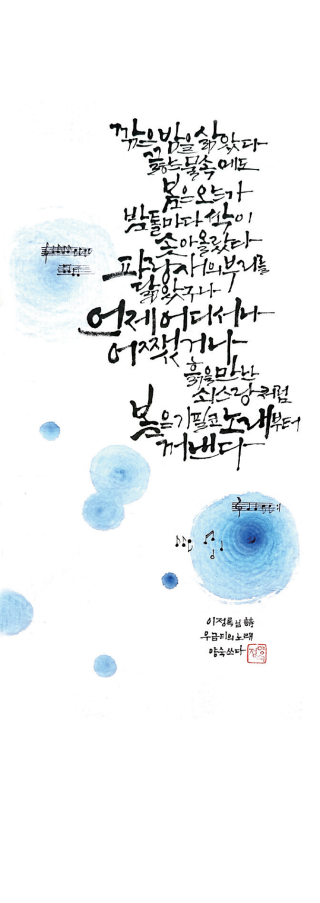 깎은 밤을 삶았다
끓는 물속에도
봄은 오는가
밤톨마다 싹이
솟아올랐다
파랑새의 부리를
닮았구나
언제 어디서나
어쨌거나
흙을 만난
쇠스랑처럼
봄은 기필코 노래부터
꺼낸다
이정록님 詩
우금티의 노래
양숙쓰다